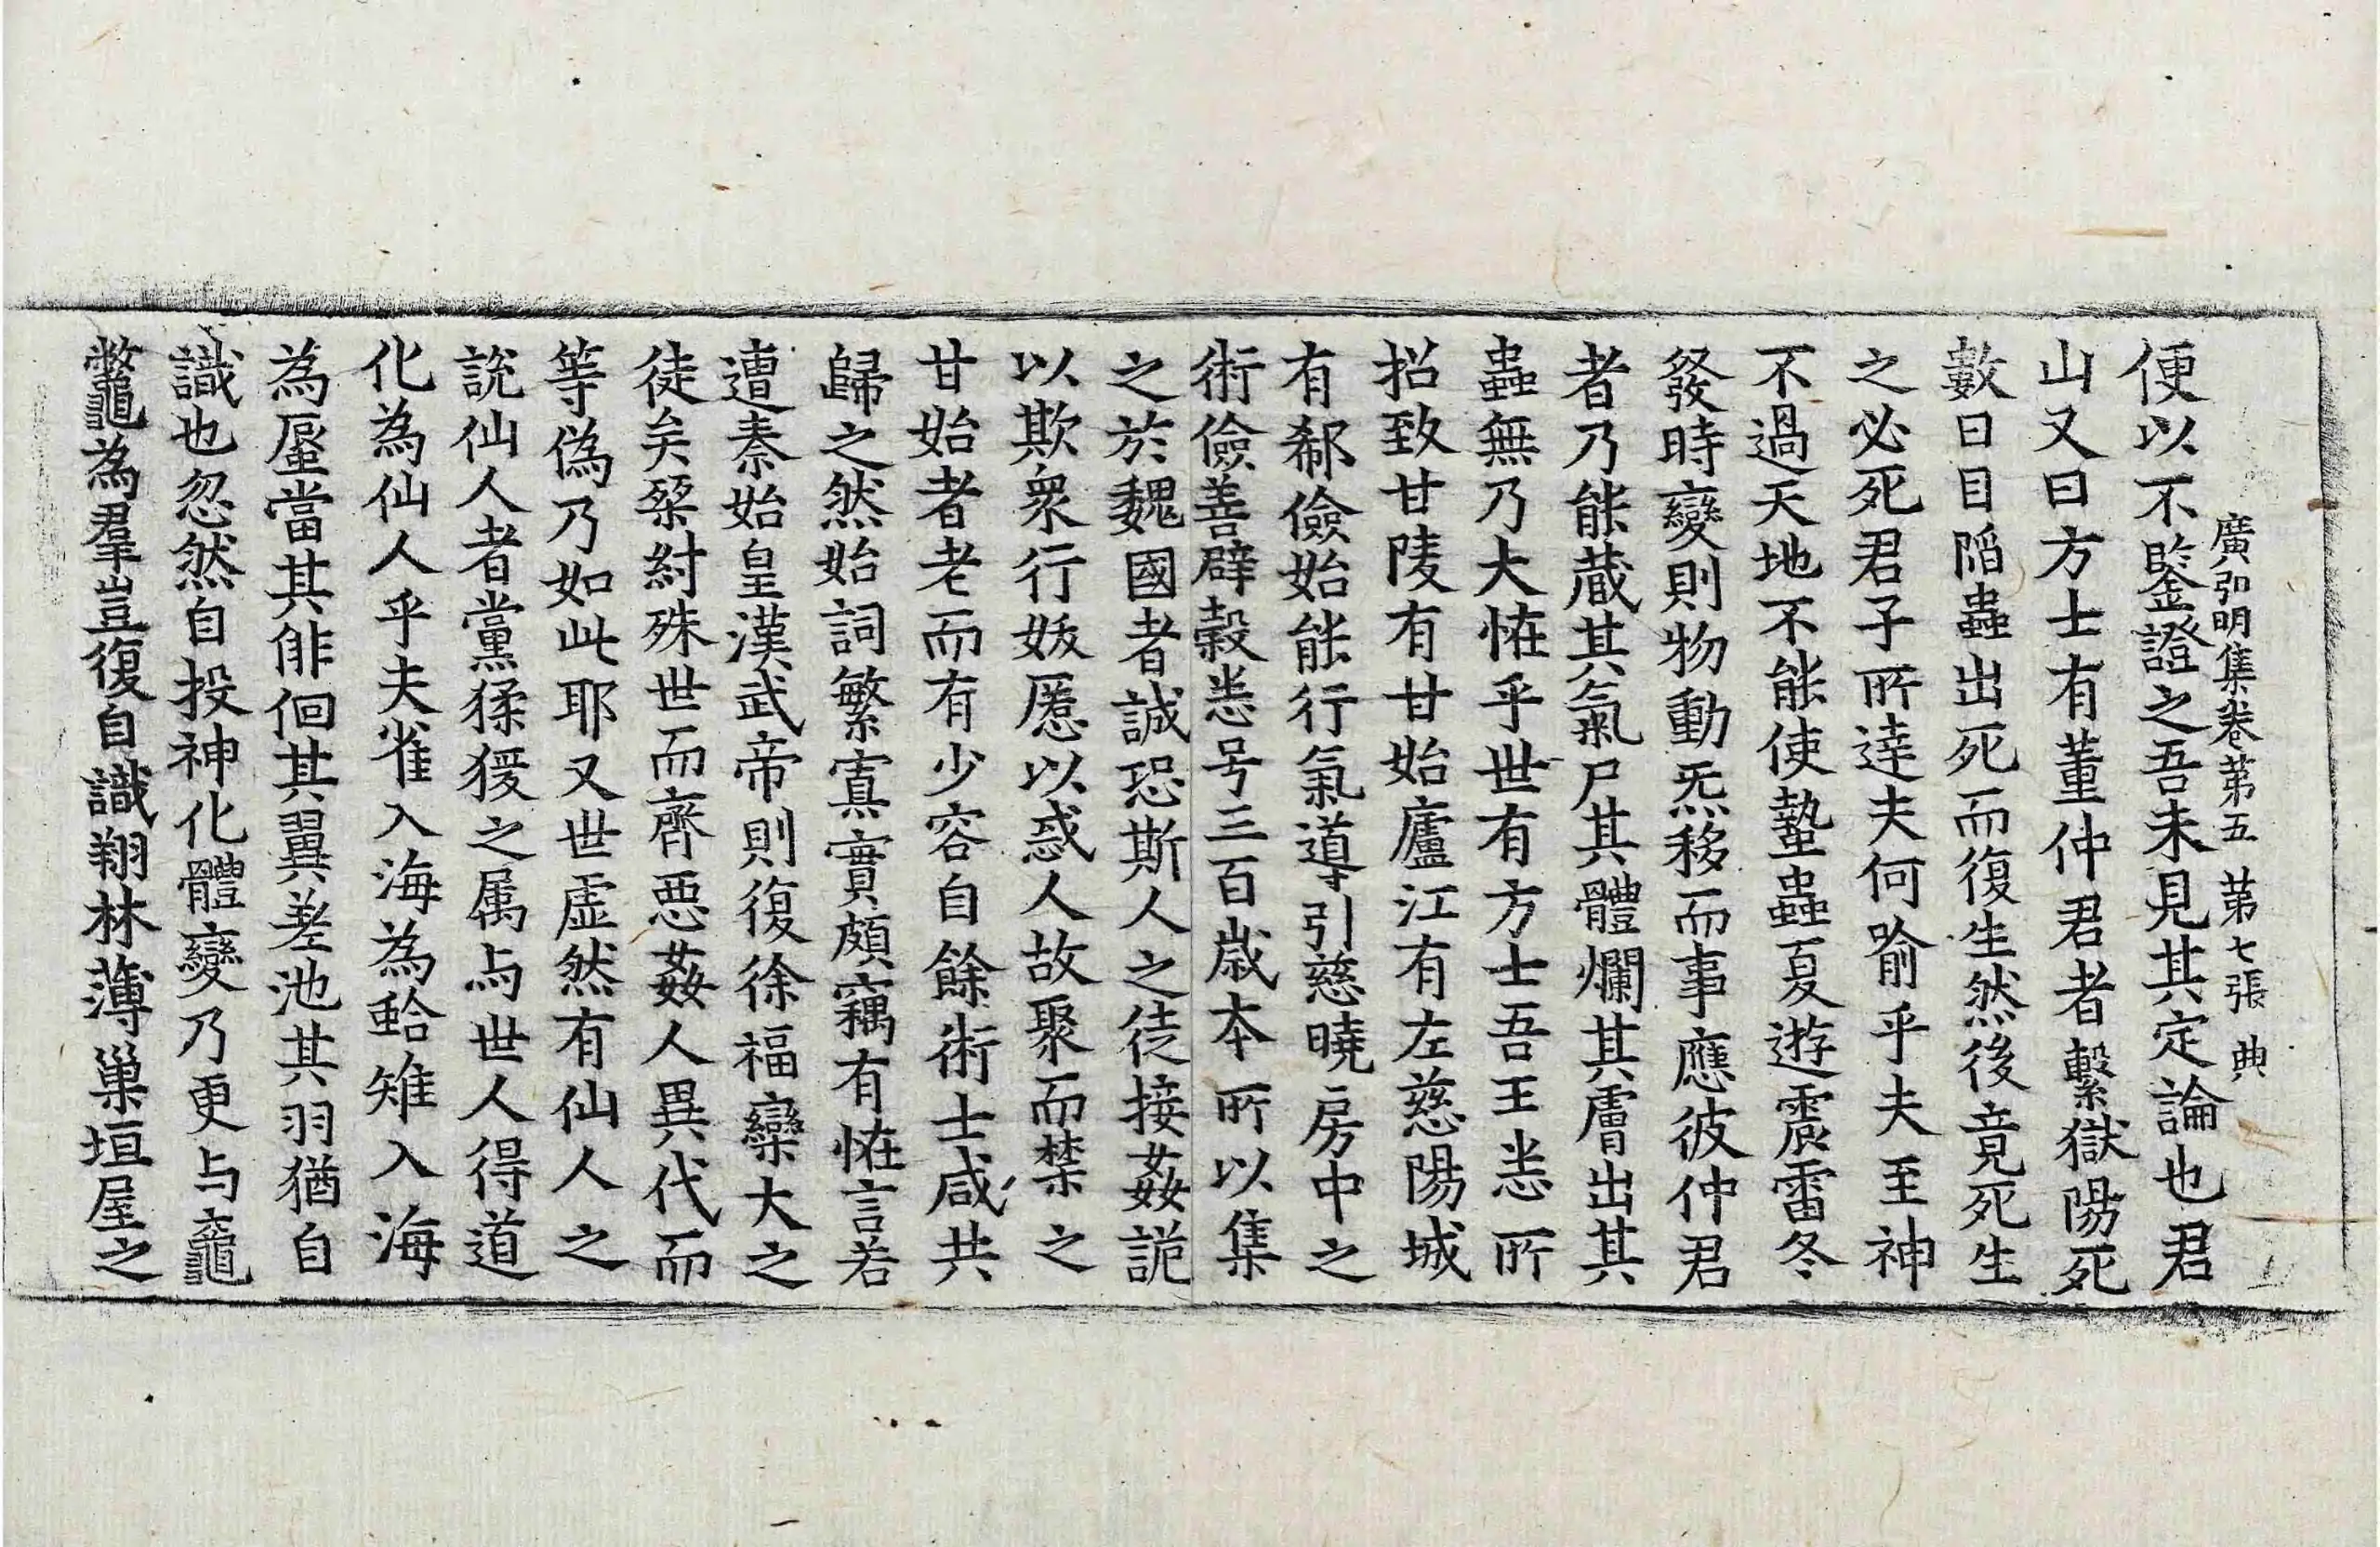 廣弘明集卷第五　第七張　典
便以不鑒證之吾未見其定論也君
山又曰方士有董仲君者繫獄陽死
數日目陷蟲出死而復生然後竟死生
之必死君子所達夫何喻乎夫至神
不過天地不能使蟄蟲夏遊震雷冬
發時變則物動炁移而事應彼仲君
者乃能蔵其氣尸其體爛其膚出其
蟲無乃大恠乎世有方士吾王悉所
招致甘陵有甘始廬江有左慈陽城
有郗儉始能行氣導引慈曉房中之
術儉善辟穀悉号三百歳本所以集
之於魏國者誠恐斯人之徒接姦詭
以欺衆行妖慝以惑人故聚而禁之
甘始者老而有少容自餘術士咸共
歸之然始詞繁寡實頗竊有恠言若
遭秦始皇漢武帝則復徐福欒大之
徒矣桀紂殊世而齊惡姦人異代而
等偽乃如此耶又世虛然有仙人之
説仙人者黨猱猨之属与世人得道
化為仙人乎夫雀入海為蛤雉入海
為蜃當其俳佪其翼差池其羽猶自
識也忽然自投神化體變乃更与黿
鼈為羣豈復自識翔林薄巢垣屋之